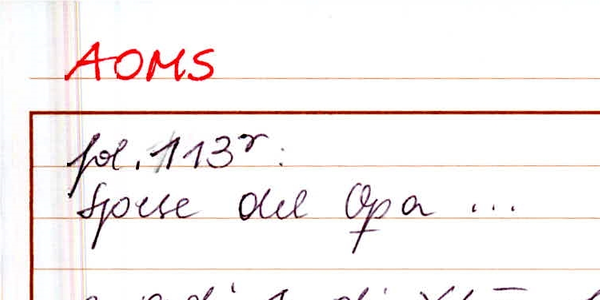 AOMS
fol. 113r:
Spese del Opa ...